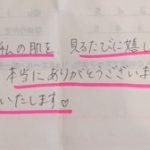 んの肌を 見るたびに嬉し
本当にありがとうございま
いたします♡